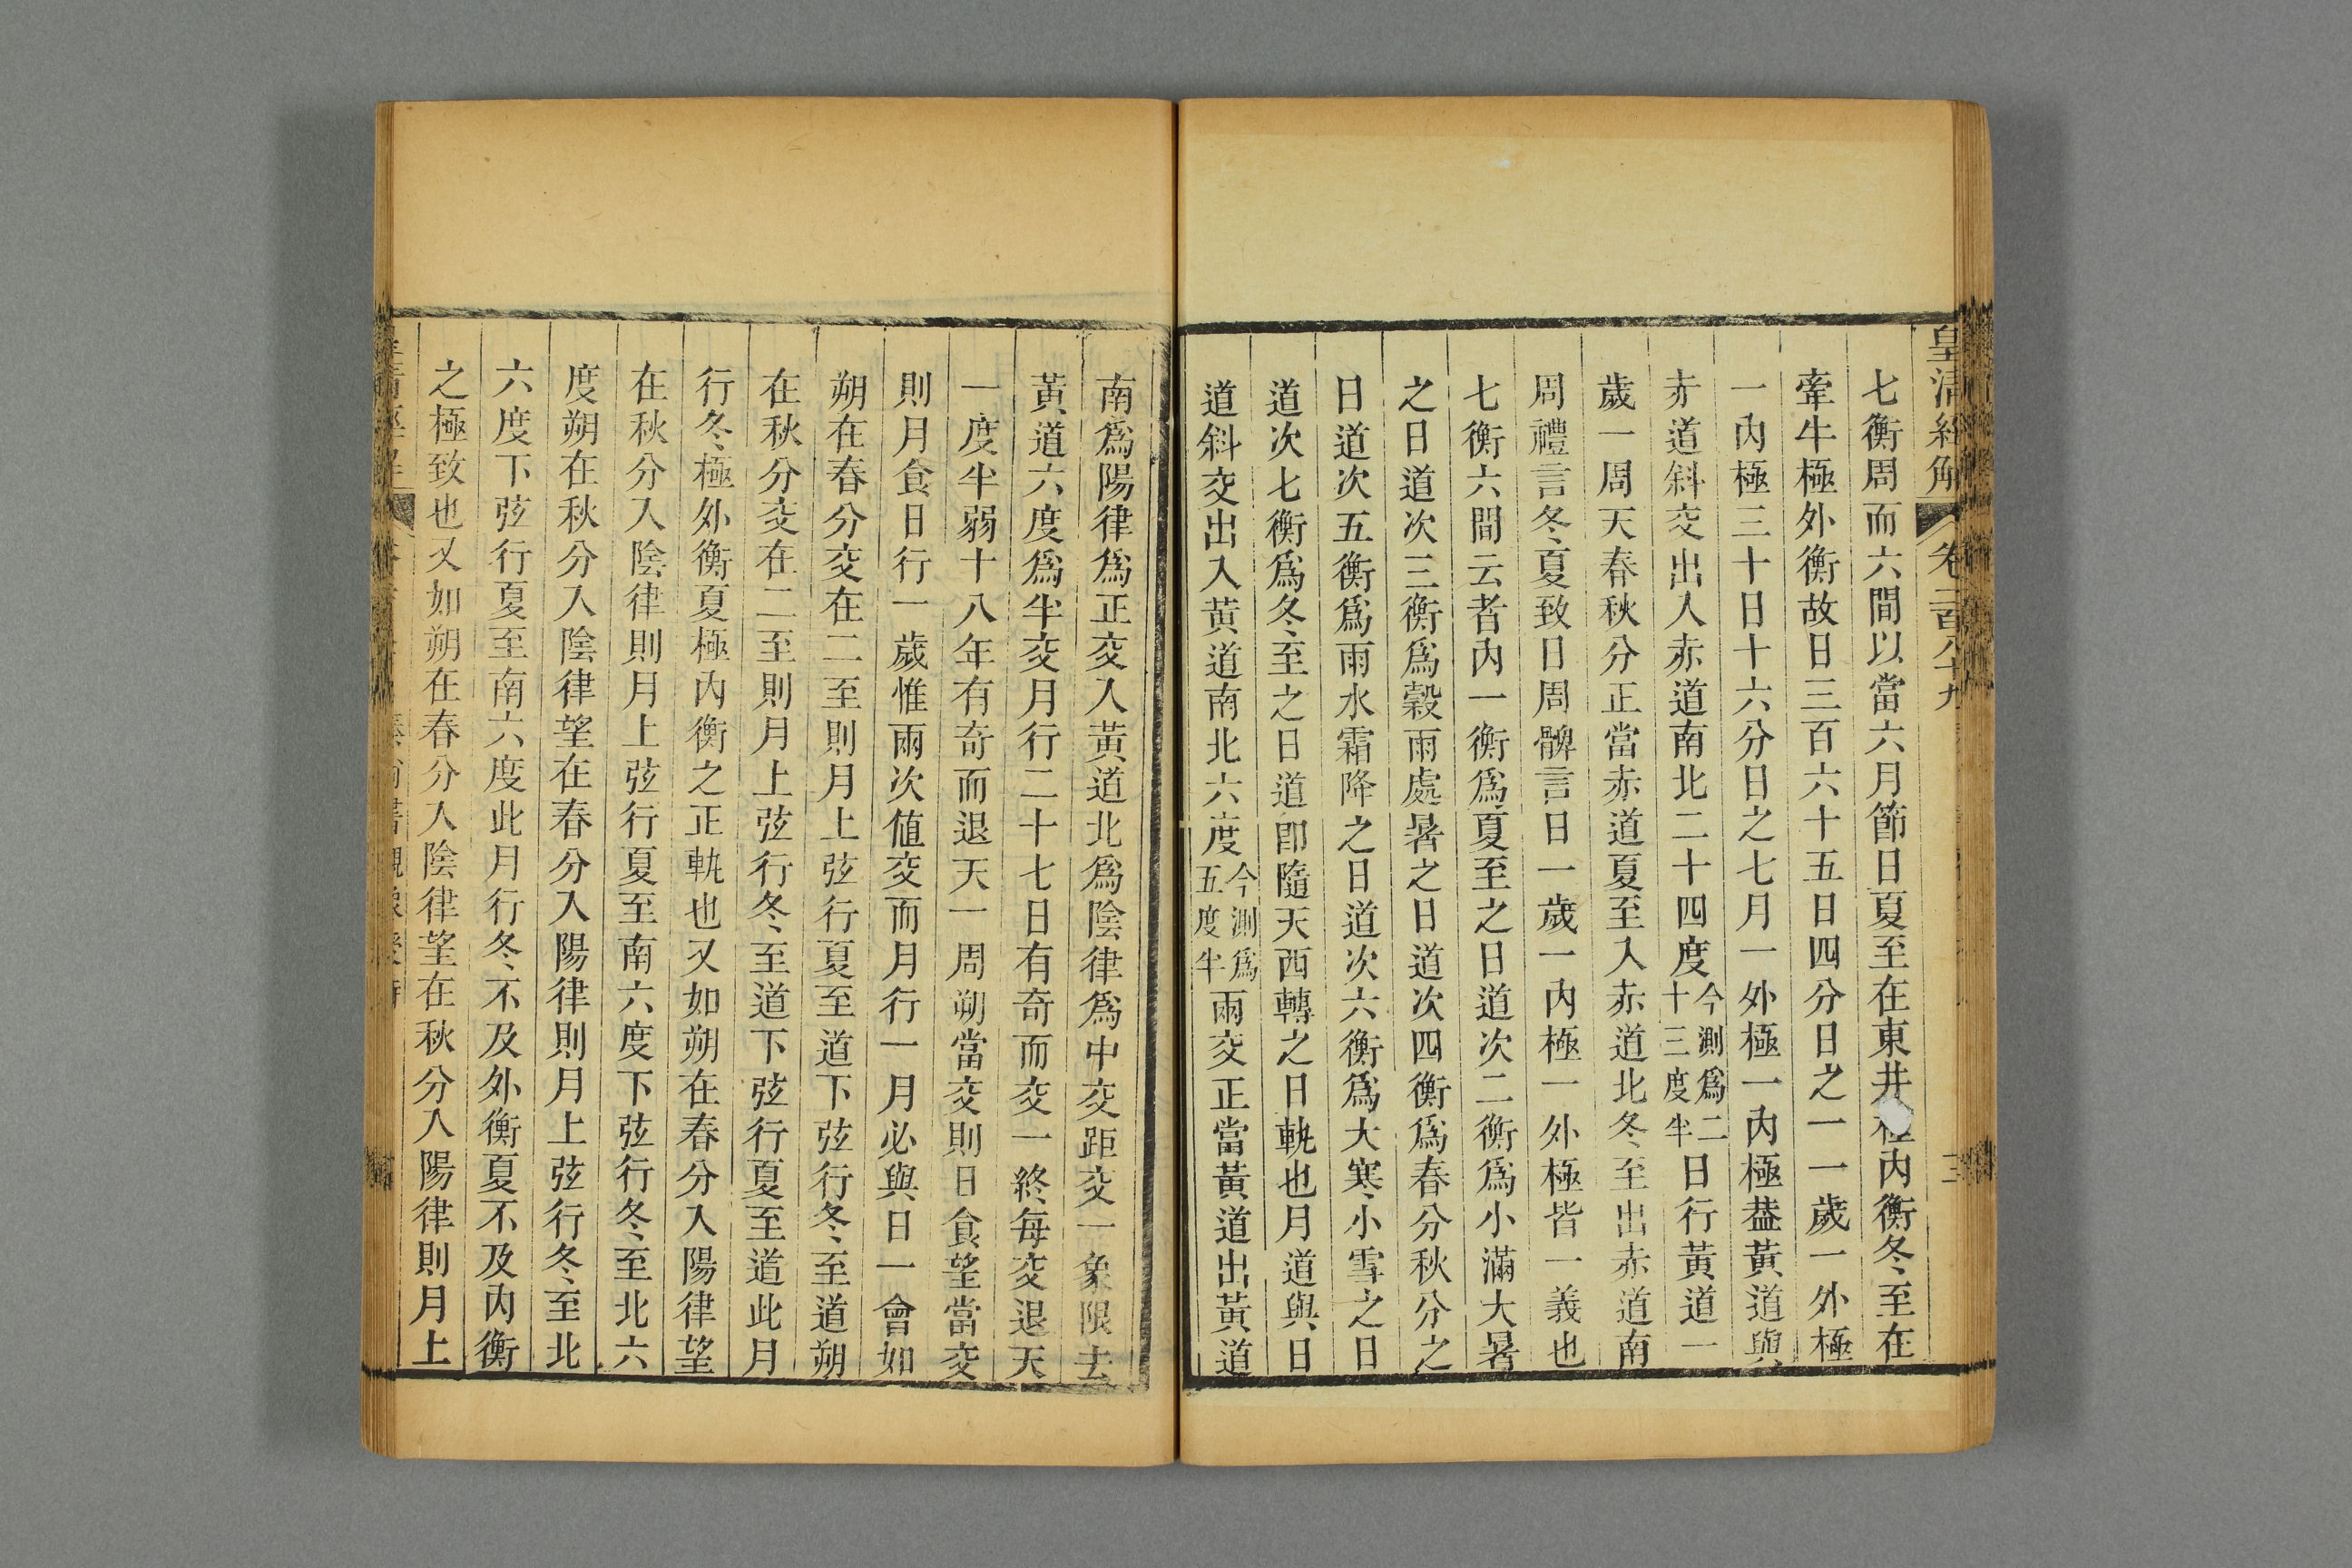 皇清經解 卷二百八十九
七衡周而六間以當六月節日夏至在東井極內衡冬至在
牽牛極外衡故日三百六十五日四分日之一一歲一外極
一內極三十日十六分日之七月一外極一內極葢黃道與
赤道斜交出入赤道南北二十四度今測爲二十三度半日行黃道一
歲一周天春秋分正當赤道夏至入赤道北冬至出赤道南
周禮言冬夏致日周髀言日一歲一內極一外極皆一義也
七衡六間云者內一衡爲夏至之日道次二衡爲小滿大暑
之日道次三衡爲穀雨處暑之日道次四衡爲春分秋分之
日道次五衡爲雨水霜降之日道次六衡爲大寒小雪之日
道次七衡爲冬至之日道卽隨天西轉之日軌也月道與日
道斜交出入黃道南北六度今測爲五度半兩交正當黃道出黃道
南爲陽律爲正交入黃道北爲陰律爲中交距交一象限去
黃道六度爲半交月行二十七日有奇而交一終每交退天
一度半弱十八年有奇而退天一周朔當交則日食望當交
則月食日行一歲惟兩次値交而月行一月必與日一會如
朔在春分交在二至則月上弦行夏至道下弦行冬至道朔
在秋分交在二至則月上弦行冬至道下弦行夏至道此月
行冬極外衡夏極內衡之正軌也又如朔在春分入陽律望
在秋分入陰律則月上弦行夏至南六度下弦行冬至北六
度朔在秋分入陰律望在春分入陽律則月上弦行冬至北
六度下弦行夏至南六度此月行冬不及外衡夏不及內衡
之極致也又如朔在春分入陰律望在秋分入陽律則月上